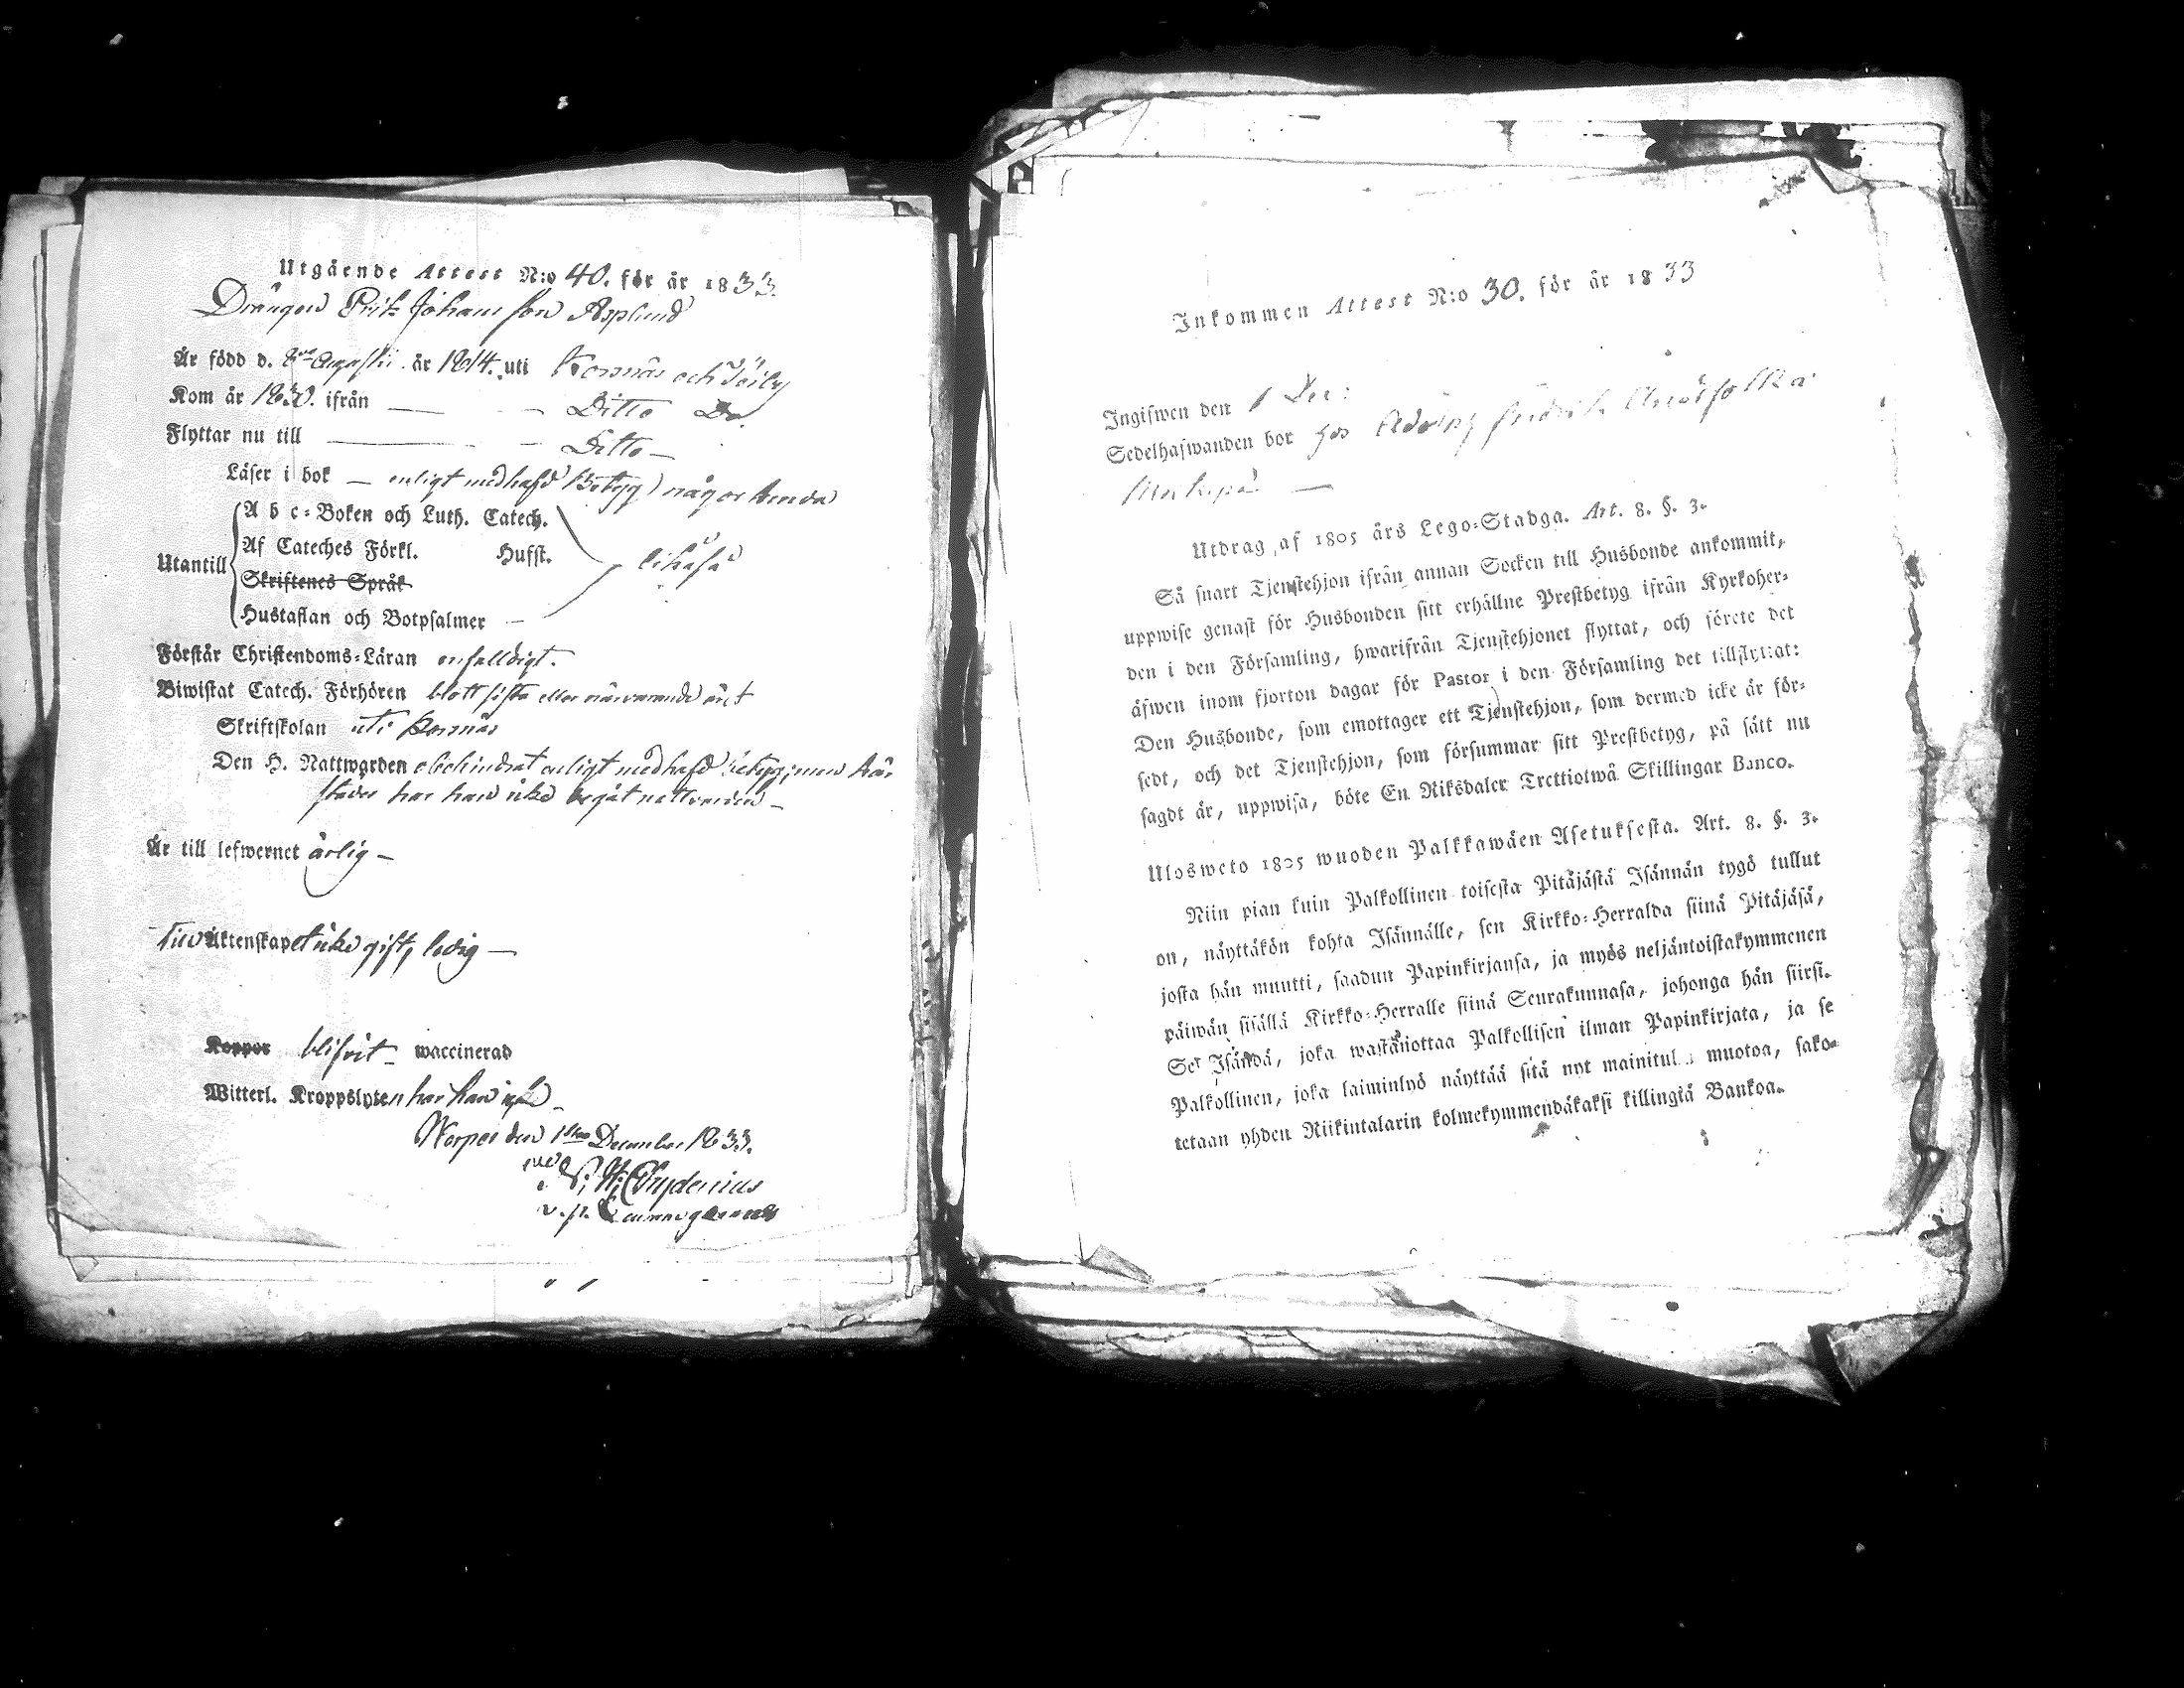 Utgående Attest N:o 40. för år 1833.
Drängen Erik Johansson Asplund
Är född d. Augusti år 1814. uti Kosnäs och
Kom år 1830. ifrån — — Ditto Do
Flyttar nu till — — Ditto —
Läser i bok — enligt medhafd Betyg) någorlunda
A b c-Boken och Luth. Catech.
Af Cateches Förkl. Hufst.
Utantill
Skriftenes Språk
Hustaflan och Botpsalmer —
Förstår Christendoms-Läran enfaldigt.
Biwistat Catech. Förhören blott sista eller närvarande året
Skriftskolan uti
Den H. Nattwarden obehindrat enligt medhafd betyg; men här-
städes har han icke begåt nattvarden —
Är till lefwernet ärlig —
Till Äktenskapet icke gift, ledig —
Koppor blifvit — waccinerad
Witterl. Kroppslyten har han icke —
den 1sta December 1833.
Chydenius
v. p.
Inkommen Attest N:o 30. för år 1833
Ingifwen den 1 Dec:
Sedelhafwanden bor hos Adolf Fredrik
Utdrag af 1805 års Lego-Stadga. Art. 8. §. 3.
Så snart Tjenstehjon ifrån annan Socken till Husbonde ankommit,
uppwise genast för Husbonden sitt erhållne Prestbetyg ifrån Kyrkoher-
den i den Församling, hwarifrån Tjenstehjonet flyttat, och förete det
äfwen inom fjorton dagar för Pastor i den Församling det tillflyttat:
Den Husbonde, som emottager ett Tjenstehjon, som dermed icke är för-
sedt, och det Tjenstehjon, som försummar sitt Prestbetyg, på sätt nu
sagdt är, uppwisa, böte En Riksdaler Trettiotwå Skillingar Banco.
Ulosweto 1805 wuoden Palkkawäen Asetuksesta. Art. 8. §. 3.
Niin pian kuin Palkollinen toisesta Pitäjästä Isännän tygö tullut
on, näyttäkön kohta Isännälle, sen Kirkko-Herralda siinä Pitäjäsä,
josta hän muutti, saadun Papinkirjansa, ja myös neljäntoistakymmenen
päiwän sisällä Kirkko-Herralle siinä Seurakunnasa, johonga hän siirsi.
Se Isändä, joka wastanottaa Palkollisen ilman Papinkirjata, ja se
Palkollinen, joka laiminlyö näyttää sitä nyt mainitulla muotoa, sako-
tetaan yhden Riikintalarin kolmekymmendäkaksi killingiä Bankoa.